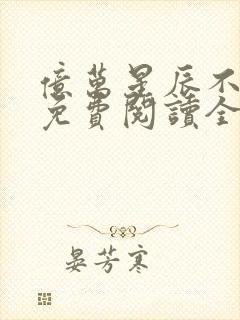 億萬星辰不
免費閱讀全
晏芳寒